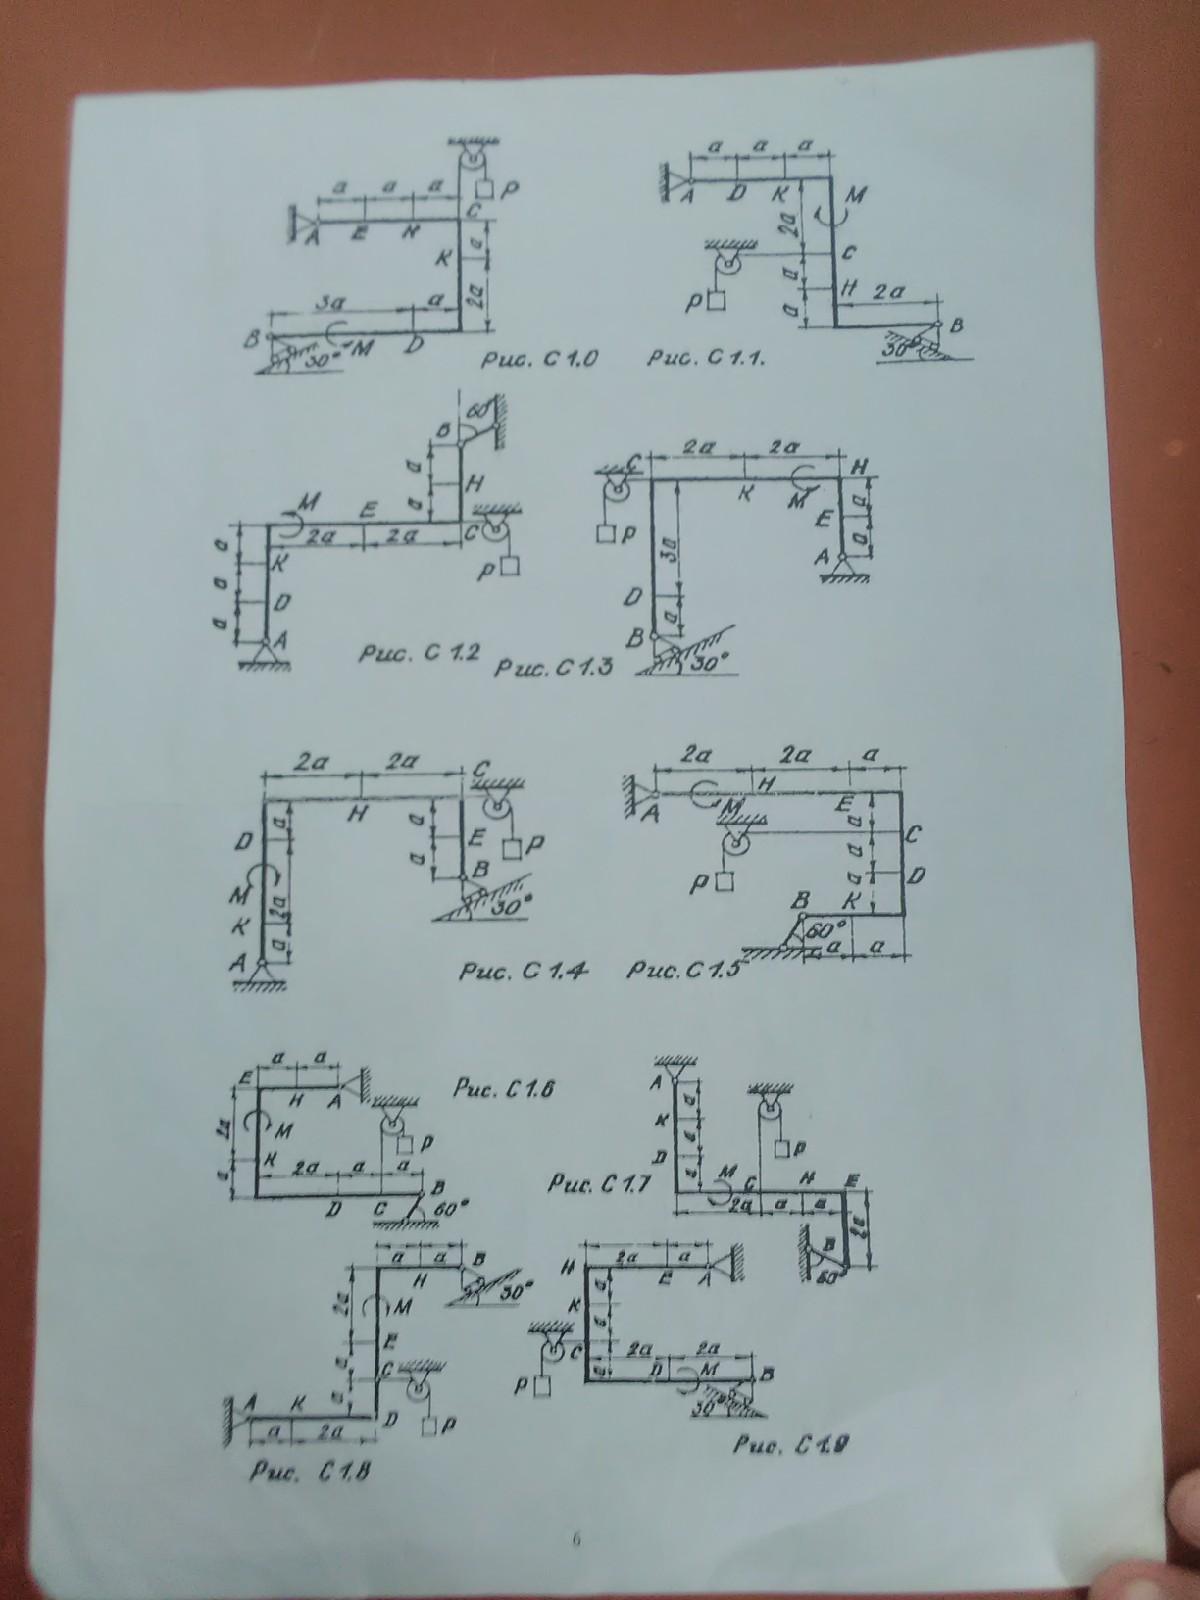 P
a a a
C
A E H
K a
2a
3a a
B 30° M D
Рис. С 1.0
a a a
A D K M
2a
C
a
P
H 2a
a
B
30°
Рис. С 1.1.
60°
B
a
H
M E a
C
2a 2a
a
K
P
a
D
a
A
Рис. С 1.2
C 2a 2a H
K M a
P E
3a a
A
D
a
B
30°
Рис. С 1.3
2a 2a C
a H a
D E P
M a B
2a 30°
K
a
A
Рис. С 1.4
2a 2a a
H
A M E
a
C
a
P a D
B K
60°
a a
Рис. С 1.5
a a
E
H A
2a M
P
K
2a a a
B
D C 60°
Рис. С 1.6
A
a
K
a
P
D
a M
C H E
2a a a
2a
B
60°
Рис. С 1.7
a a B
H
2a M 30°
E
a
C
A K a
D P
a 2a
Рис. С 1.8
H 2a a
E A
a
K
a
C
2a 2a
P a D M B
30°
Рис. С 1.9
6